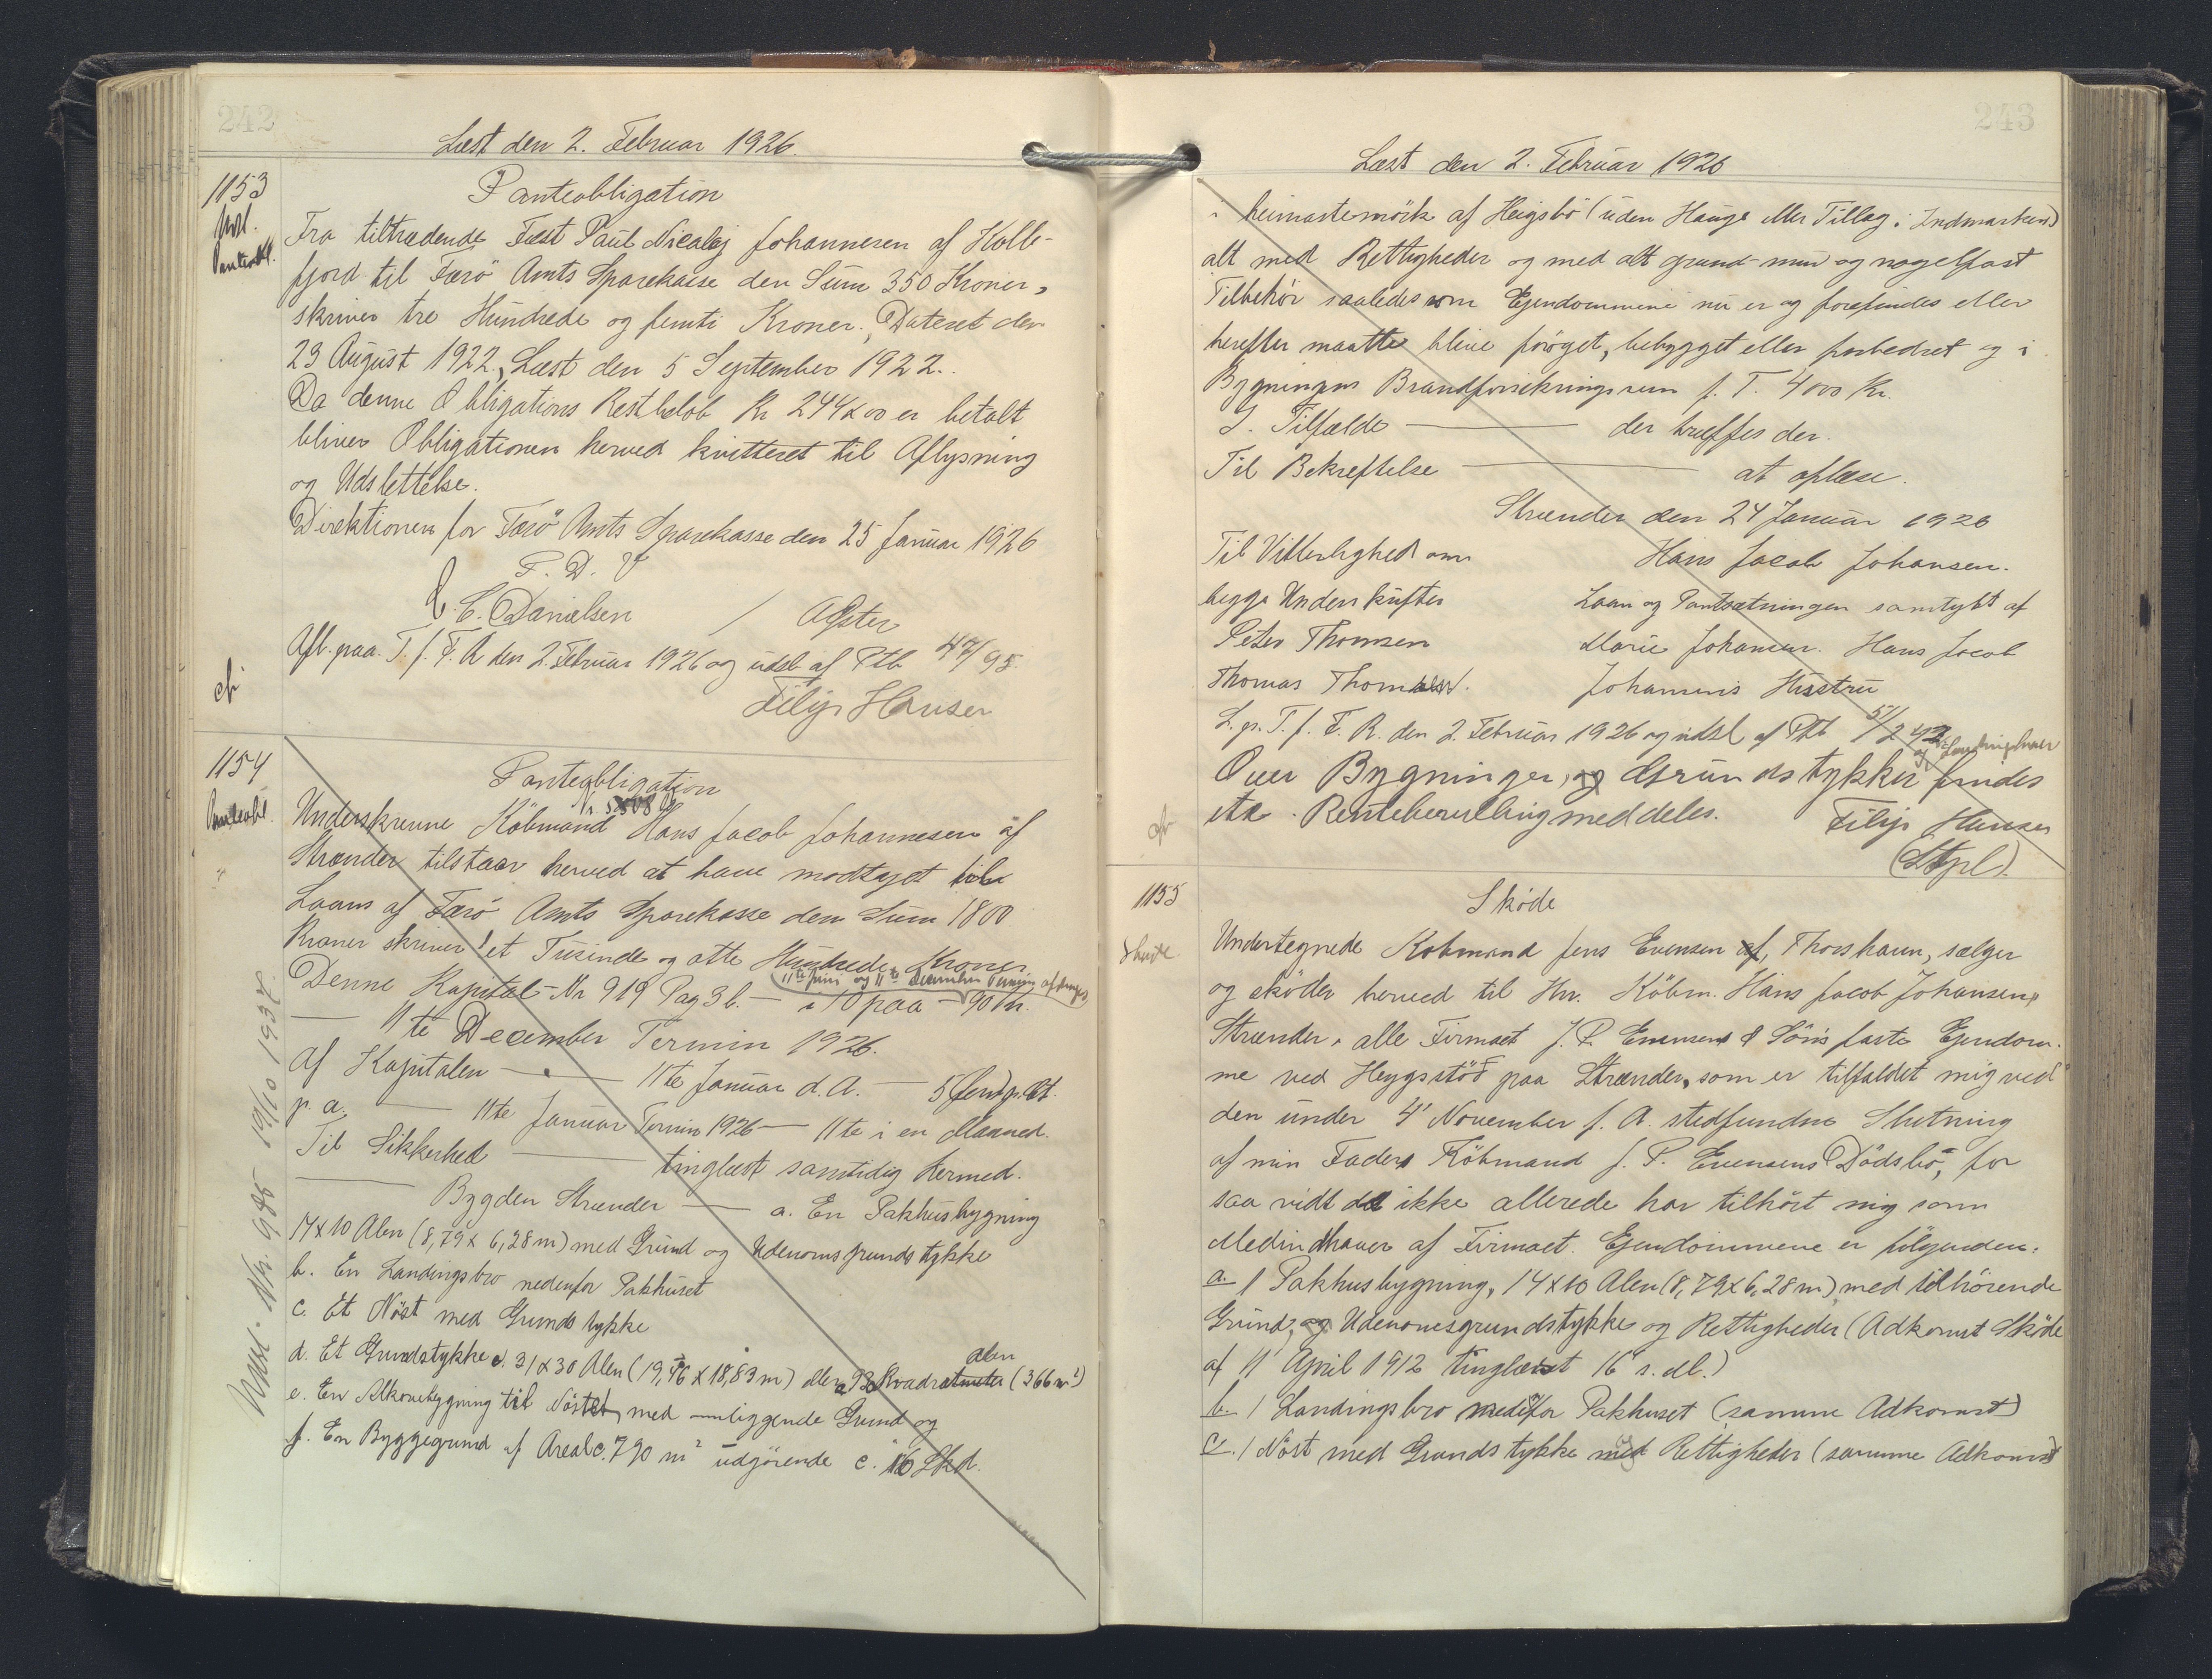 242
Læst den 2. Februar 1926.
1153
Udsl.
Panteobl.
Panteobligation
Fra tiltrædende Fæst Paul Nicolaj Johannesen af Kolle-
fjord til Færö Amts Sparekasse den Sum 350 Kroner,
skriver tre Hundrede og femti Kroner. Dateret den
23 August 1922. Læst den 5 September 1922.
Da denne Obligations Restbelöb Kr 244 x 00 er betalt
bliver Obligationen herved kvitteret til Aflysning
og Udslettelse.
Direktionen for Færö Amts Sparekasse den 25 Januar 1926
P. D. V
C. C. Danielsen / A Öster
Afl. paa T. f. F. R den 2. Februar 1926 og udsl af Ptb 47/95.
Filip Hansen
1154
Panteobl.
Panteobligation
Nr. 5508
Underskrevne Köbmand Hans Jacob Johannesen af
Strænder tilstaar herved at have modtaget til
Laans af Færö Amts Sparekasse den Sum 1800
Kroner skriver et Tusinde og otte Hundrede Kroner
11te Juni og 11te December Termin
Denne Kapital - Nr 919 Pag 3 b. — i 10 paa — 90 Kr.
— 11te December Termin 1926.
Af Kapitalen — 11te Januar d. A. — 5 pCt.
p. a. — 11te Januar Termin 1926 — 11te i en Maaned.
Til Sikkerhed — tinglæst samtidig hermed.
— Bygden Strænder — a. En Pakhusbygning
14 x 10 Alen (8,79 x 6,28 m) med Grund og Udenomsgrundstykke
b. En Landingsbro nedenfor Pakhuset
c. Et Nöst med Grundstykke
d. Et Grundstykke c. 31 x 30 Alen (19,46 x 18,83 m) eller c. 930 Kvadratmeter alen (366 m²)
e. En Alkovebygning til Nöstet med omliggende Grund og
f. En Byggegrund af Areal c. 790 m² udgörende c. 16 Skd.
Udsl. Nr. 985 19/10 1932
243
Læst den 2. Februar 1926
i heimastemörk af Heigsbö (uden Hauge eller Tillæg i Indmarken)
alt med Rettigheder og med alt grund- mur og nagelfast
Tilbehör saaledes som Ejendommene nu er og forefindes eller
herefter maatte blive foröget, bebygget eller forbedret og i
Bygningens Brandforsikringssum f. T. 4000 Kr.
I Tilfælde — der træffes der.
Til Bekræftelse — at aflæse.
Strænder den 24 Januar 1926
Til Vitterlighed om Hans Jacob Johansen.
begge Underskrifter Laan og Pantsætningen samtykt af
Peter Thomsen Marie Johansen. Hans Jacob
Thomas Thomsen. Johannesens Hustru
L. p. T. f. F. R. den 2. Februar 1926 og indsl af Ptb 51/242
Over Bygninger, og Grundstykker og Landingsbroer findes
ikke Rentebevilling meddeles. Filip Hansen
(Stpl).
1155
Sköde
Sköde
Undertegnede Köbmand Jens Evensen af, Thorshavn, sælger
og sköder herved til Hr. Köbm. Hans Jacob Johansen,
Strænder, alle Firmaet J. P. Evensens & Söns faste Ejendom-
me ved Heygsstöð paa Strænder, som er tilfaldet mig ved
den under 4' November f. A. stedfundne Slutning
af min Faders Köbmand J. P. Evensens Dödsbo, for
saa vidt de ikke allerede har tilhört mig som
Medindhaver af Firmaet. Ejendommene er fölgende:
a. 1 Pakhusbygning, 14 x 10 Alen (8,79 x 6,28 m) med tilhörende
Grund, og Udenomsgrundstykke og Rettigheder (Adkomst Sköde
af 11' April 1912 tinglæst 16 s. M.)
b. 1 Landingsbro nedenfor Pakhuset (samme Adkomst)
c. 1 Nöst med Grundstykke med Rettigheder (samme Adkomst)